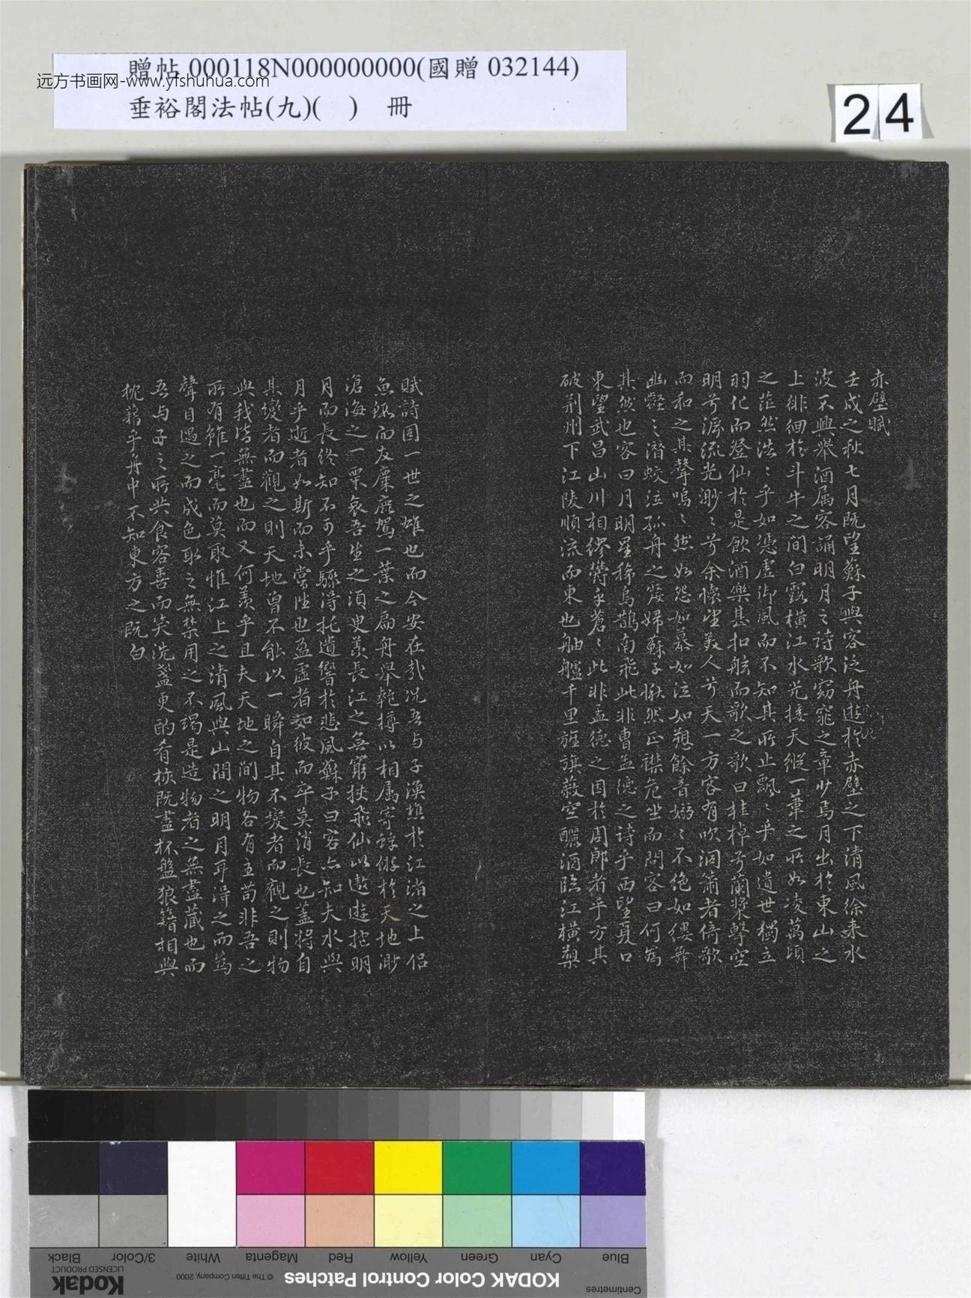 贈帖 000118N000000000(國贈 032144)
远方书画网-www.yishuhua.com
垂裕閣法帖(九)( ) 冊
24
赤壁賦
壬戌之秋七月既望蘇子與客泛舟遊於赤壁之下清風徐來水
波不興舉酒属客誦明月之詩歌窈窕之章少焉月出於東山之
上徘徊於斗牛之間白露橫江水光接天縱一葦之所如凌萬頃
之茫然浩〻乎如憑虛御風而不知其所止飄〻乎如遺世獨立
羽化而登仙於是飲酒樂甚扣舷而歌之歌曰桂棹兮蘭槳擊空
明兮泝流光渺〻兮余懷望美人兮天一方客有吹洞簫者倚歌
而和之其聲嗚〻然如怨如慕如泣如愬餘音嫋〻不絕如縷舞
幽壑之潛蛟泣孤舟之嫠婦蘇子愀然正襟危坐而問客曰何為
其然也客曰月明星稀烏鵲南飛此非曹孟德之詩乎西望夏口
東望武昌山川相繆欝乎蒼〻此非孟德之困於周郎者乎方其
破荊州下江陵順流而東也舳艫千里旌旗蔽空釃酒臨江橫槊
賦詩固一世之雄也而今安在哉况吾与子漁樵於江渚之上侶
魚鰕而友麋鹿駕一葉之扁舟舉匏樽以相属寄蜉蝣於天地渺
滄海之一粟哀吾生之須臾羨長江之無窮挾飛仙以遨遊抱明
月而長終知不可乎驟得托遺響於悲風蘇子曰客亦知夫水與
月乎逝者如斯而未嘗往也盈虛者如彼而卒莫消長也蓋將自
其變者而觀之則天地曾不能以一瞬自其不變者而觀之則物
與我皆無盡也而又何羨乎且夫天地之間物各有主苟非吾之
所有雖一毫而莫取惟江上之清風與山間之明月耳得之而為
聲目遇之而成色取之無禁用之不竭是造物者之無盡藏也而
吾与子之所共食客喜而笑洗盞更酌肴核既盡杯盤狼籍相與
枕藉乎舟中不知東方之既白
Black 3/Color White Magenta Red Yellow Green Cyan Blue
Kodak
LICENSED PRODUCT
© The Tiffen Company, 2000
KODAK Color Control Patches
Centimetres